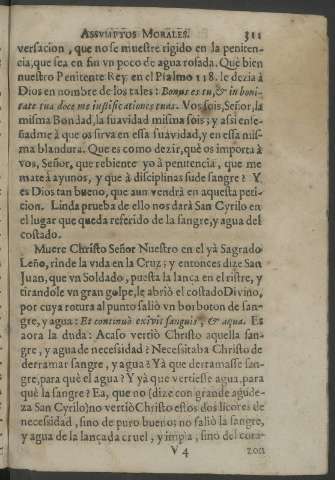 ASSVMPTOS MORALES. 311
versacion, que no se muestre rigido en la peniten-
cia, que sea en fin vn poco de agua rosada. Què bien
nuestro Penitente Rey en el Psalmo 118. le dezia à
Dios en nombre de los tales: Bonus es tu, & in boni-
tate tua doce me iustificationes tuas. Vos sois, Señor, la
misma Bondad, la suavidad misma sois; y assi ense-
ñadme à que os sirva en essa suavidad, y en essa mis-
ma blandura. Que es como dezir, què os importa à
vos, Señor, que rebiente yo à penitencia, que me
mate à ayunos, y que à disciplinas sude sangre? Y
es Dios tan bueno, que aun vendrà en aquesta peti-
cion. Linda prueba de ello nos darà San Cyrilo en
el lugar que queda referido de la sangre, y agua del
costado.
Muere Christo Señor Nuestro en el yà Sagrado
Leño, rinde la vida en la Cruz; y entonces dize San
Juan, que vn Soldado, puesta la lança en el ristre, y
tirandole vn gran golpe, le abriò el costado Divino,
por cuya rotura al punto saliò vn borboton de san-
gre, y agua: Et continuò exivit sanguis, & aqua. Es
aora la duda: Acaso vertiò Christo aquella san-
gre, y agua de necessidad? Necessitaba Christo de
derramar sangre, y agua? Yà que derramasse san-
gre, para què el agua? Y yà que vertiesse agua, para
què la sangre? Ea, que no (dize con grande agude-
za San Cyrilo) no vertiò Christo estos dos licores de
necessidad, sino de puro bueno: no saliò la sangre,
y agua de la lançada cruel, y impia, sino del cora-
V 4 zon